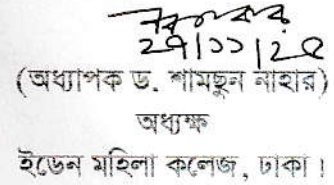 ২৭/১১/২৫
(অধ্যাপক ড. শামছুন নাহার)
অধ্যক্ষ
ইডেন মহিলা কলেজ, ঢাকা।